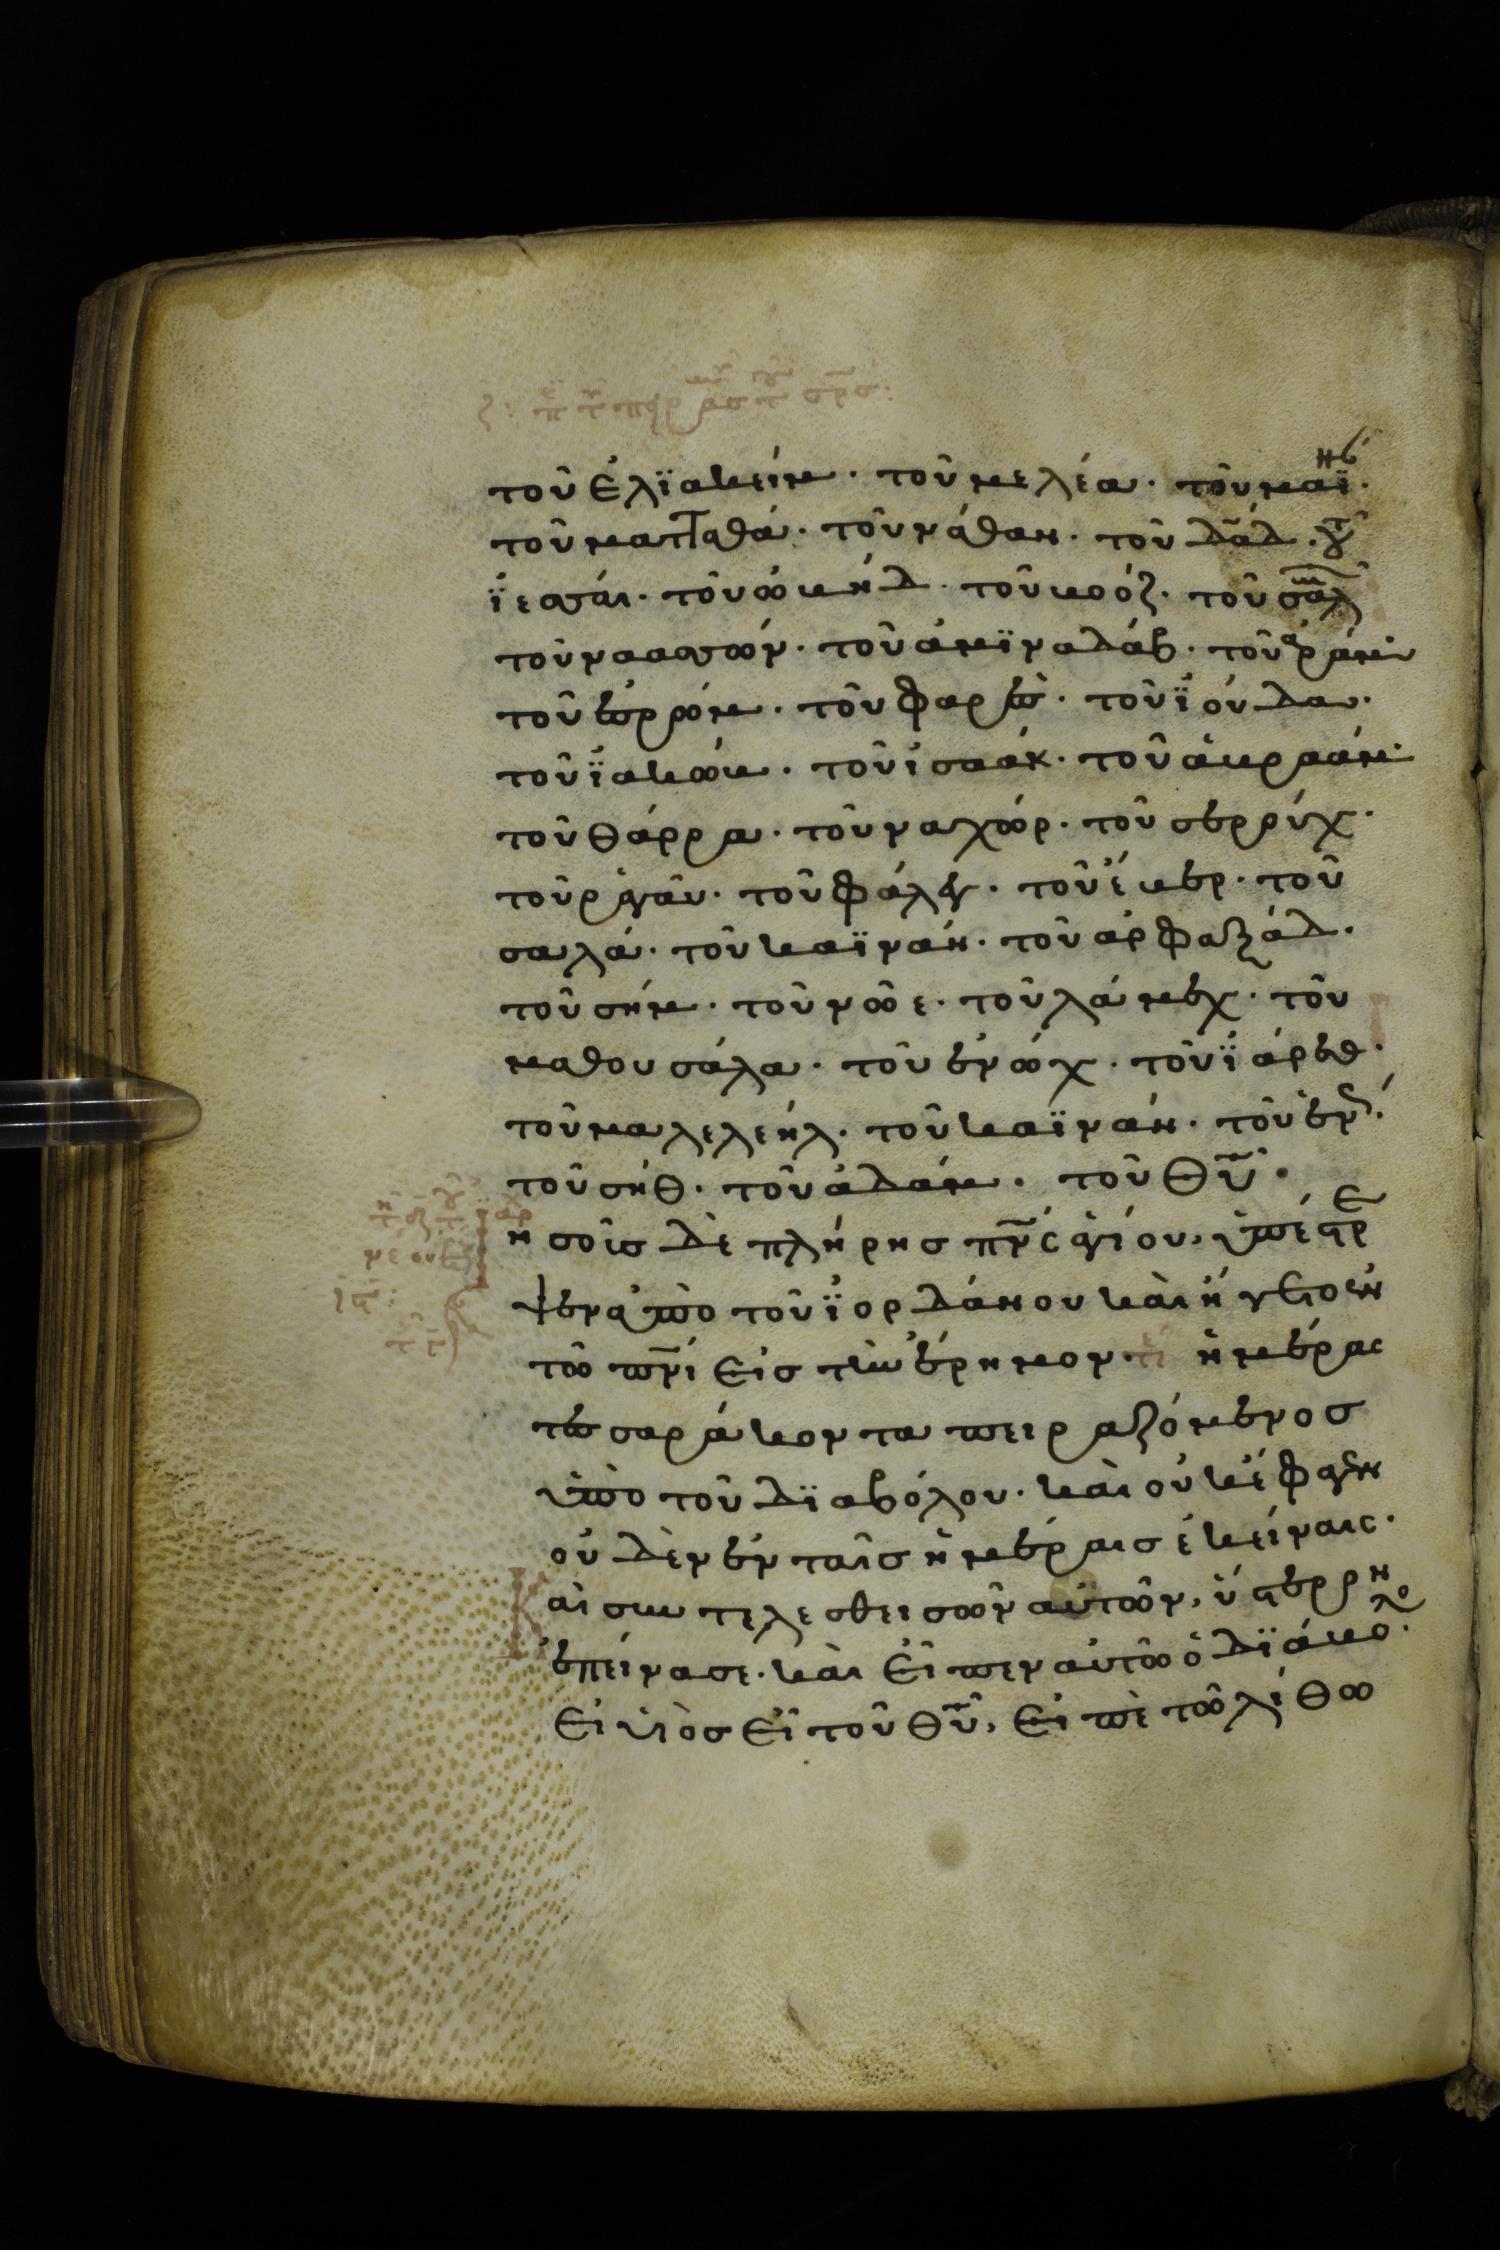 τοῦ ἐλϊακείμ· τοῦ μελέα· τοῦ μαϊ
τοῦ ματταθά· τοῦ νάθαν· τοῦ δᾱδ· τοῦ
ϊεσσαί· τοῦ ὠβήδ· τοῦ βοόζ· τοῦ σαλ
τοῦ ναασσών· τοῦ ἀμϊναδάβ· τοῦ ἀράμ·
τοῦ ἐσρρόμ· τοῦ φαρὲς· τοῦ ϊούδα·
τοῦ ϊακώβ· τοῦ ἰσαάκ· τοῦ ἀβραάμ·
τοῦ θάρρα· τοῦ ναχώρ· τοῦ σερρύχ·
τοῦ ραγαῦ· τοῦ φάλεγ· τοῦ ἔβερ· τοῦ
σαλά· τοῦ καϊνάν· τοῦ ἀρφαξάδ·
τοῦ σήμ· τοῦ νῶε· τοῦ λάμεχ· τοῦ
μαθουσάλα· τοῦ ἐνώχ· τοῦ ϊάρεδ·
τοῦ μαλελεήλ· τοῦ καϊνάν· τοῦ ἐν
τοῦ σήθ· τοῦ ἀδάμ· τοῦ θ̅υ̅·
ησοῖς δὲ πλήρης π̅ν̅ς ἁγίου, ὑπέστρε
ψεν ἀπὸ τοῦ ϊορδάνου καὶ ἤγετο ἐν
τῶ π̅ν̅ι εἰς τὴν ἔρημον· ἡμέρας
τεσσαράκοντα πειραζόμενος
ὑπὸ τοῦ δϊαβόλου· καὶ οὐκ ἔφαγεν
οὐδὲν ἐν ταῖς ἡμέραις ἐκείναις·
Καὶ συντελεσθεισῶν αὐτῶν, ὕστερρν
ἐπείνασε· καὶ εἶπεν αὐτῶ ὁ δϊάβολο·
εἰ υἱὸς εἶ τοῦ θ̅υ̅, εἰπὲ τῶ λίθω